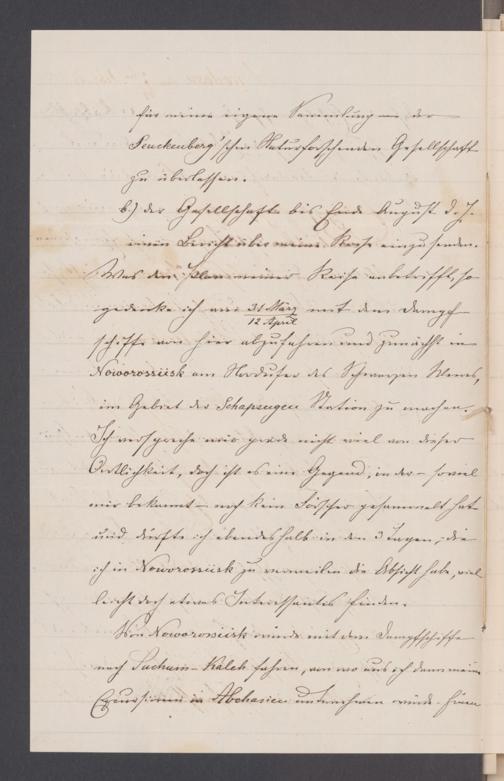 für meine eigene Sammlung — der
Senckenberg'schen Naturforschenden Gesellschaft
zu überlassen.
b.) der Gesellschaft bis Ende August d. J.
einen Bericht über meine Reise einzusenden.
Was den Plan meiner Reise anbetrifft, so
gedenke ich am 31 März / 12 April mit dem Dampf-
schiffe von hier abzufahren und zunächst in
Noworossiisk am Nordufer des Schwarzen Meeres,
im Gebiet der Schapsugen Station zu machen.
Ich verspreche mir grade nicht viel von dieser
Oertlichkeit, doch ist es eine Gegend, in der — soviel
mir bekannt — noch kein Forscher gesammelt hat
und dürfte ich ebendeshalb in den 3 Tagen, die
ich in Noworossiisk zu verweilen die Absicht habe, viel
leicht doch etwas Interessantes finden.
Von Noworossiisk würde mit dem Dampfschiffe
nach Suchum-Kaleh fahren, von wo aus ich dann meine
Excursionen in Abchasien unternehmen würde.